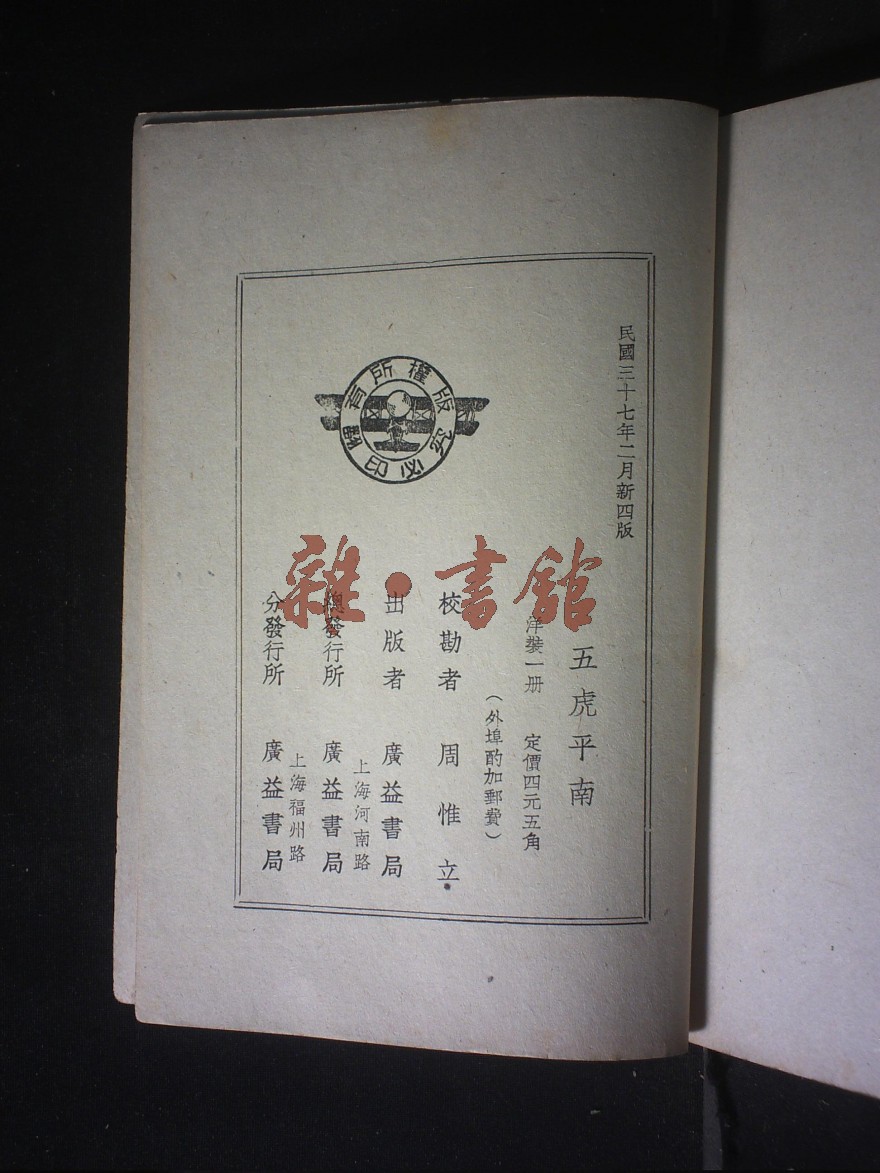 民國三十七年二月新四版
五虎平南
洋裝一册 定價四元五角
（外埠酌加郵費）
校勘者 周惟立
出版者 廣益書局
上海河南路
總發行所 廣益書局
上海福州路
分發行所 廣益書局
版權所有
翻印必究
雜·書館